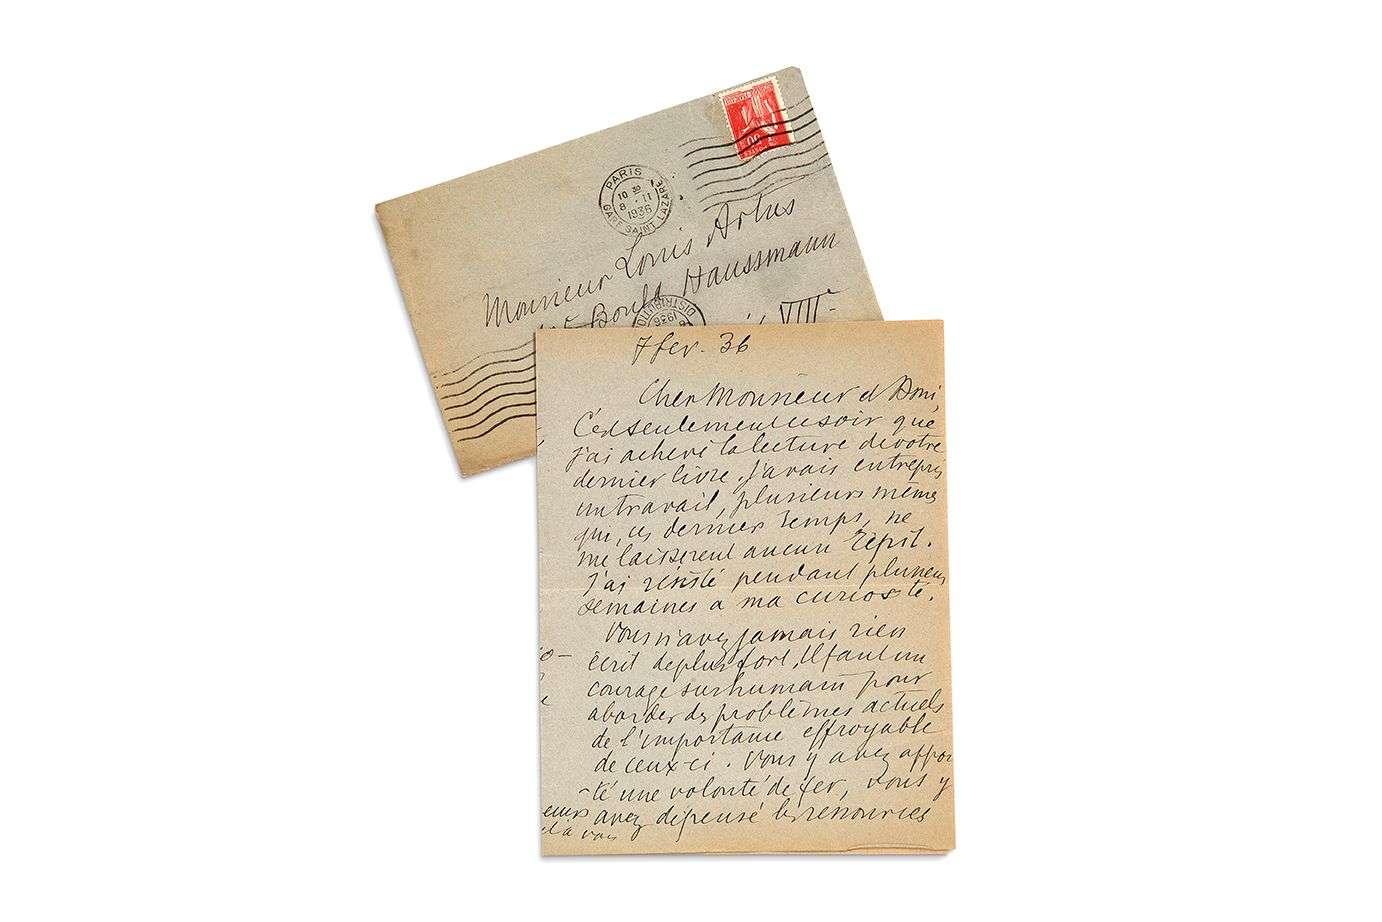 PARIS
10 30
8 · II
1936
GARE SAINT LAZARE
50
Monsieur Louis Artus
Bould Haussmann
VIIIe
DISTRIBUTION
1936
7 fev. 36
Cher Monsieur et Ami,
C'est seulement ce soir que
j'ai achevé la lecture de votre
dernier livre. J'avais entrepris
un travail, plusieurs même
qui, ces derniers temps, ne
me laissèrent aucun répit.
J'ai résisté pendant plusieurs
semaines à ma curiosité.
Vous n'avez jamais rien
écrit de plus fort. Il faut un
courage surhumain pour
aborder des problèmes actuels
de l'importance effroyable
de ceux-ci. Vous y avez appor
-té une volonté de fer, vous y
avez dépensé les ressources